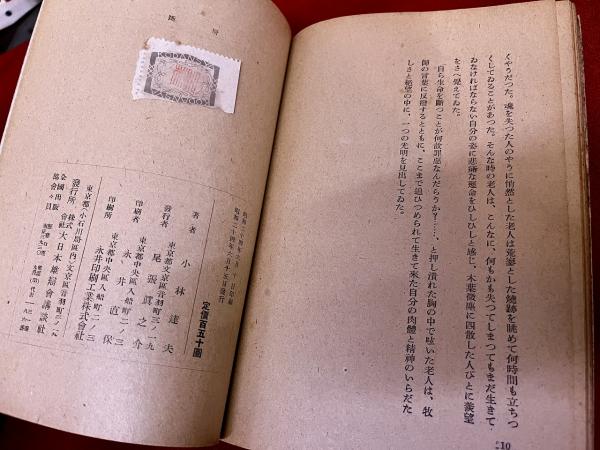 くやうだつた。魂を失つた人のやうに悄然とした老人は荒涼とした燒跡を眺めて何時間も立ちつ
くしてゐることがあつた。そんな時の老人は、こんなに、何もかも失つてしまつてもまだ生きて
ゐなければならない自分の姿に悲痛な運命をひしひしと感じ、木葉微塵に四散した人びとに羨望
をさへ覺えてゐた。
「自ら生命を斷つことが何故罪惡なんだらうか？……」と押し潰れた胸の中で呟いた老人は、牧
師の言葉に反撥するとともに、ここまで追ひつめられて生きて來た自分の肉體と精神のいらだた
しさと絶望の中に、一つの光明を見出してゐた。
210
KODANSYA
KODANSYA
昭和二十四年六月十五日發行
定價百五十圓
著者 小林達夫
東京都文京區音羽町三ノ一九
發行者 尾張眞之介
東京都中央區入船町二ノ三
印刷者 永井直保
東京都中央區入船町二ノ三
印刷所 永井印刷工業株式會社
東京都小石川局區内文京區音羽町三ノ一九
發行所 株式會社 大日本雄辯會講談社
全國出版協會々員